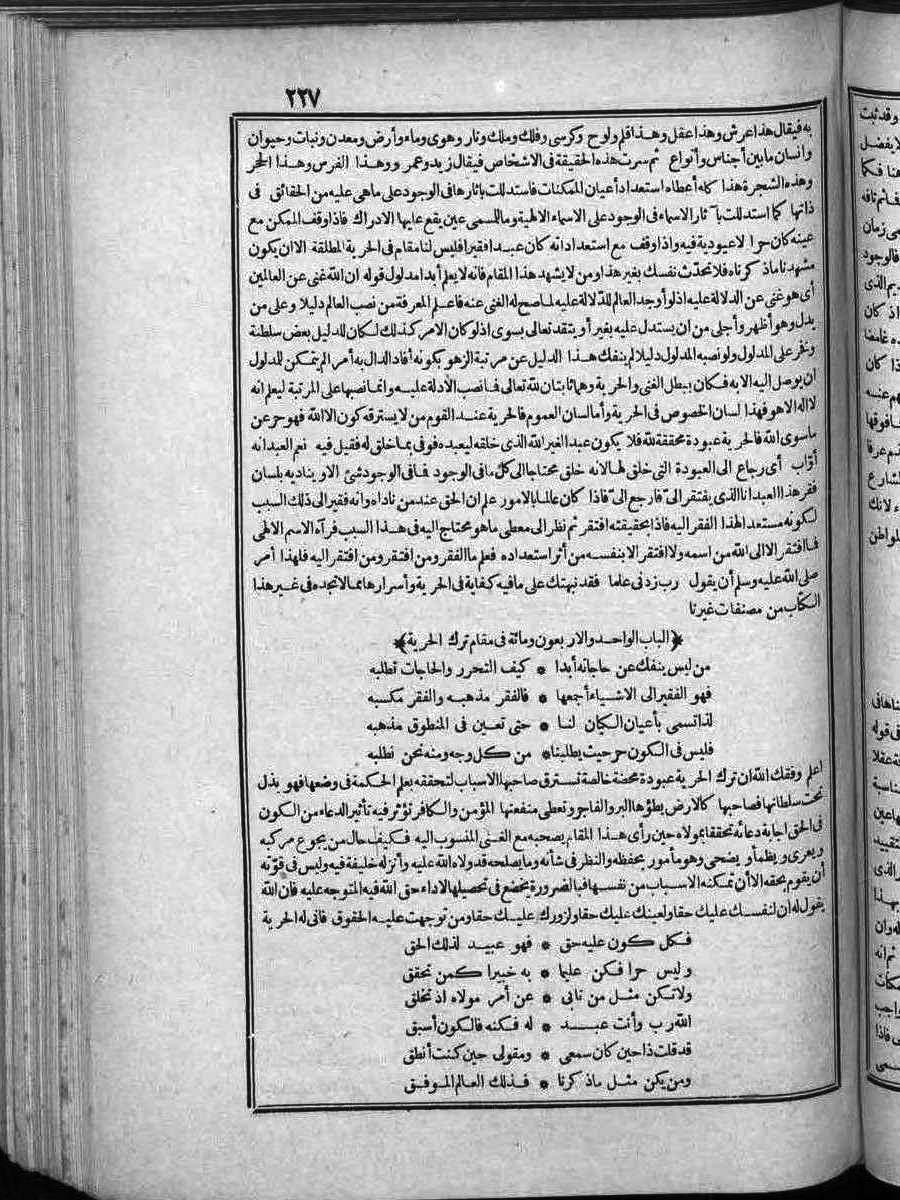 ٢٢٧
به فيقال هذا عرش وهذا عقل وهذا قلم ولوح وكرسى وفلك وملك ونار وهوى وماء وأرض ومعدن ونبات وحيوان
وانسان ما بين أجناس وأنواع ثم سرت هذه الحقيقة فى الاشخاص فيقال زيد وعمر ووهذا الفرس وهذا الحجر
وهذه الشجرة هذا كله أعطاه استعداد أعيان الممكنات فاستدللت بآثارها فى الوجود على ماهى عليه من الحقائق فى
ذاتها كما استدللت بآثار الاسماء فى الوجود على الاسماء الالهية وما للمسمى عين يقع عليها الادراك فاذا وقف الممكن مع
عينه كان حرا لا عبودية فيه واذا وقف مع استعداداته كان عبدا فقيرا فليس لنا مقام فى الحرية المطلقة الا ان يكون
مشهدنا ماذكرناه فلا تحدّث نفسك بغير هذا ومن لا يشهد هذا المقام فانه لا يعلم أبدا مدلول قوله ان الله غنى عن العالمين
أى هو غنى عن الدلالة عليه اذ لو أوجد العالم للدّلالة عليه لما صح له الغنى عنه فاعلم المعرفة من نصب العالم دليلا وعلى من
يدل وهو أظهر وأجلى من ان يستدل عليه بغير أو يتقيد تعالى بسوى اذ لو كان الامر كذلك لكان للدليل بعض سلطنة
وفخر على المدلول ولو نصبه المدلول دليلا لم ينفك هذا الدليل عن مرتبة الزهو بكونه أفاد الدال به أمرا لم يتمكن للمدلول
ان يوصل اليه الا به فكان يبطل الغنى والحرية وهما ثابتان لله تعالى فما نصب الأدلة عليه وانما نصبها على المرتبة ليعلم انه
لا اله الا هو فهذا لسان الخصوص فى الحرية وأما لسان العموم فالحرية عند القوم من لا يسترقه كون الا الله فهو حر عن
ما سوى الله فالحرية عبودة محققة لله فلا يكون عبدا لغير الله الذى خلقه ليعبده فوفى بما خلق له فقيل فيه نعم العبد انه
أوّاب أى رجاع الى العبودة التى خلق لها لانه خلق محتاجا الى كل ما فى الوجود فما فى الوجود شئ الا ويناديه بلسان
فقر هذا العبد انا الذى يفتقر الىّ فارجع الىّ فاذا كان عالما بالامور علم ان الحق عند من ناداه وانه فقير الى ذلك السبب
لكونه مستعد الهذا الفقر اليه فاذا بحقيقته افتقر ثم نظر الى معطى ماهو محتاج اليه فى هذا السبب فرآه الاسم الالهى
فما افتقر الا الى الله من اسمه ولا افتقر الا بنفسه من أثر استعداده فعلم ما الفقر ومن افتقر ومن افتقر اليه فلهذا أمر
صلى الله عليه وسلم أن يقول رب زدنى علما فقد نبهتك على ما فيه كفاية فى الحرية وأسرارها مما لا تجده فى غير هذا
الكتاب من مصنفات غيرنا
﴿الباب الواحد والاربعون ومائة فى مقام ترك الحرية﴾
من ليس ينفك عن حاجاته أبدا * كيف التحرر والحاجات تطلبه
فهو الفقير الى الاشياء أجمعها * فالفقر مذهبه والفقر مكسبه
لذا تسمى بأعيان الكيان لنا * حتى تعين فى المنطوق مذهبه
فليس فى الكون حر حيث يطلبنا * من كل وجه ومنه نحن نطلبه
اعلم وفقك الله ان ترك الحرية عبودة محضة خالصة تسترق صاحبها الاسباب لتحققه بعلم الحكمة فى وضعها فهو يذل
تحت سلطانها فصاحبها كالارض يطؤها البر والفاجر وتعطى منفعتها المؤمن والكافر تؤثر فيه تأثير الدعاء من الكون
فى الحق اجابة دعائه تحققا بمولاه حين رأى هذا المقام يصحبه مع الغنى المنسوب اليه فكيف حال من يجوع مركبه
ويعرى ويظمأ ويضحى وهو مأمور بحفظه والنظر فى شأنه وما يصلحه قد ولاه الله عليه وأنزله خليفة فيه وليس فى قوّته
أن يقوم بحقه الا أن تمكنه الاسباب من نفسها فبالضرورة يخضع فى تحصيلها لاداء حق الله فيه المتوجه عليه فان الله
يقول له ان لنفسك عليك حقا ولعينك عليك حقا ولزورك عليك حقا ومن توجهت عليه الحقوق فانى له الحرية
فكل كون عليه حق * فهو عبيد لذلك الحق
وليس حرا فكن عليما * به خبيرا كمن تحقق
ولا تكن مثل من تابى * عن أمر مولاه اذ تخلق
الله رب وأنت عبد * له فكنه فالكون أسبق
قد قلت ذا حين كان سمعى * ومقولى حين كنت أنطق
ومن يكن مثل ماذكرنا * فذلك العالم الموفق